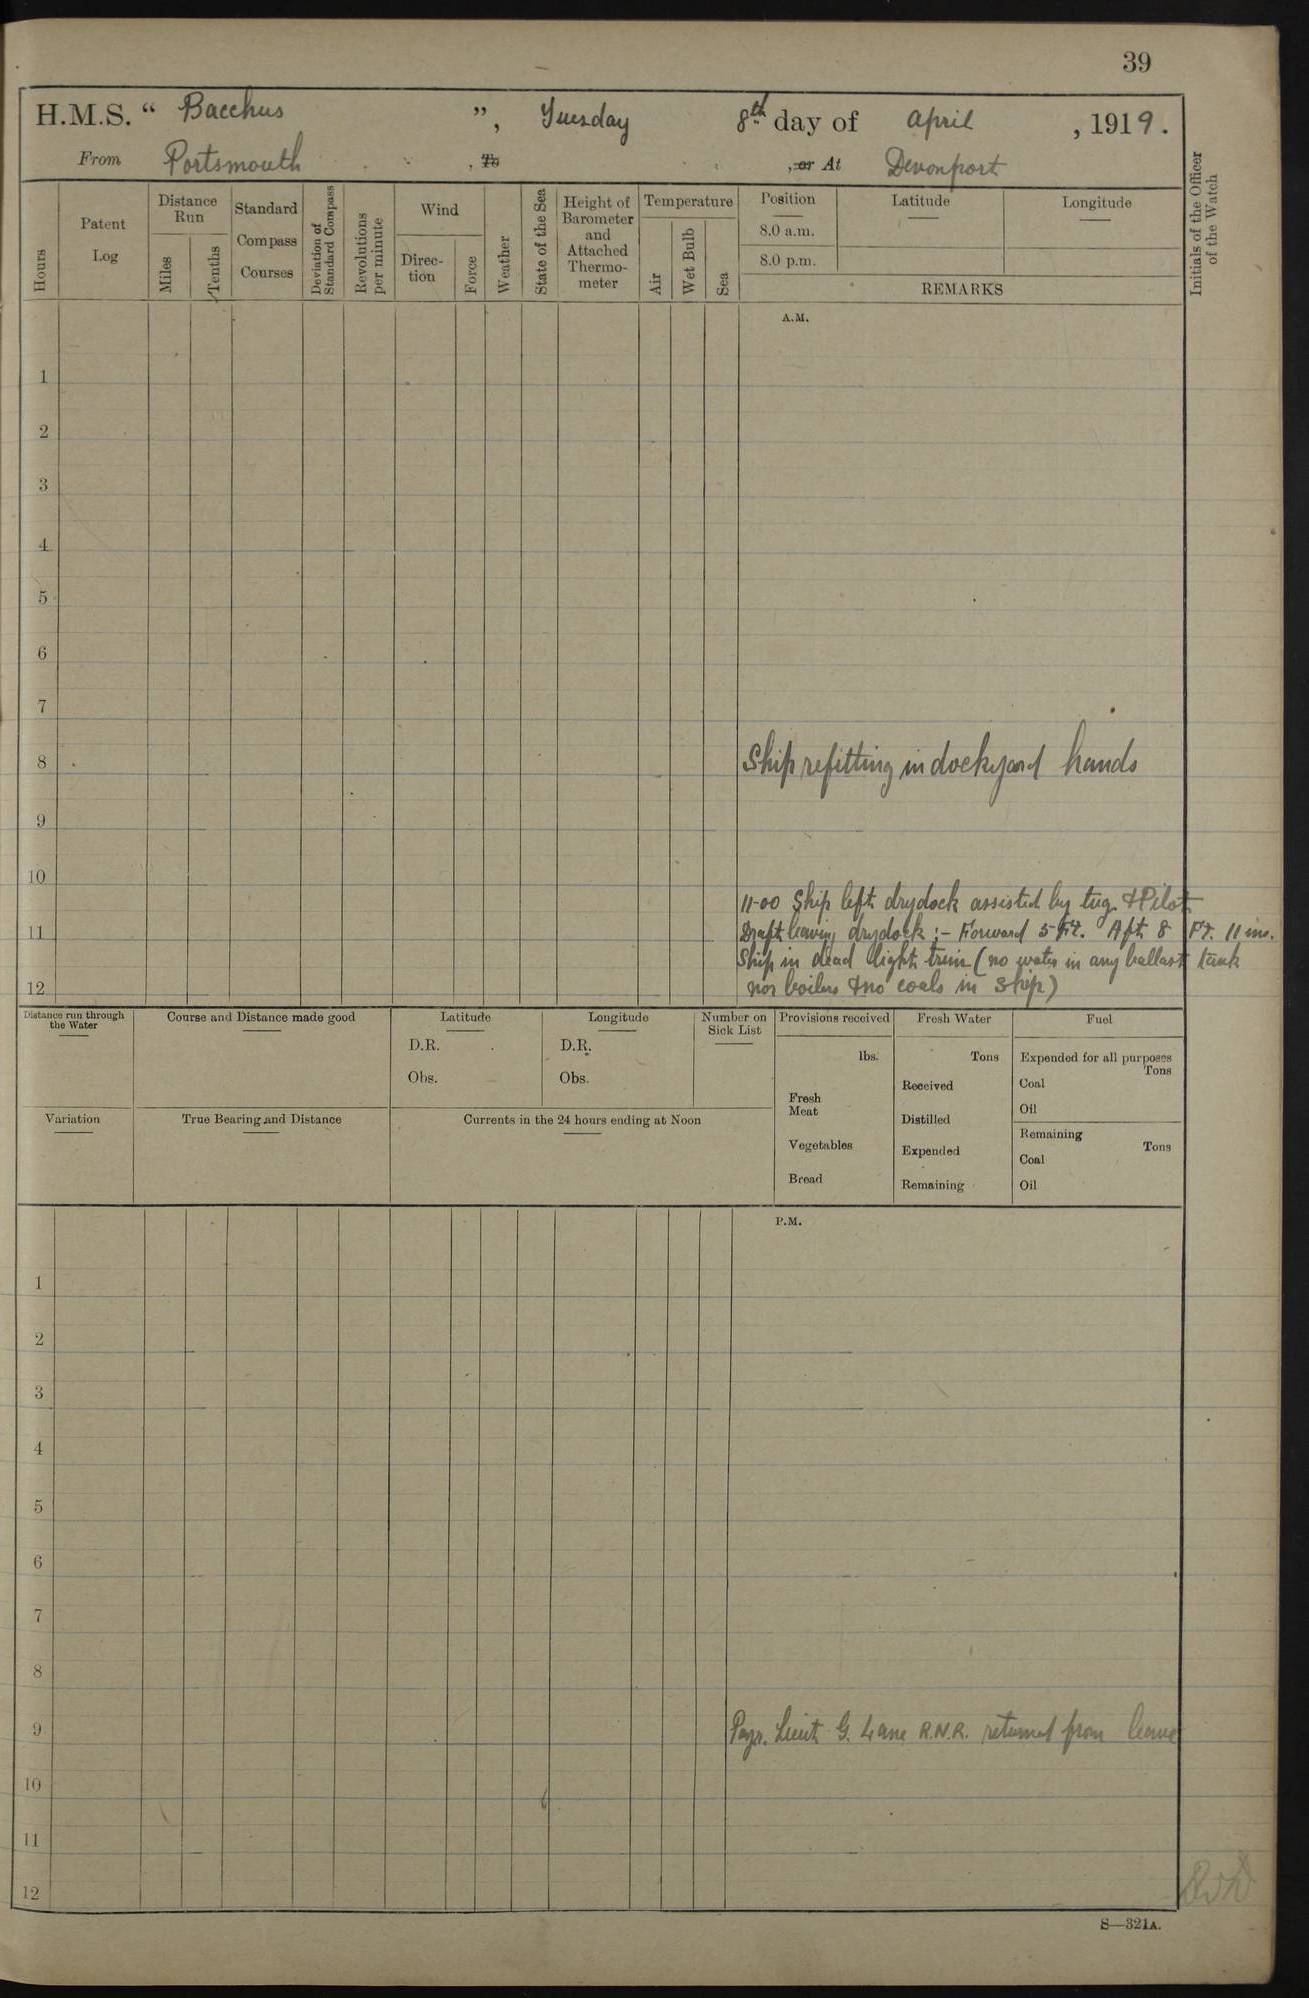 39
H.M.S. “ Bacchus ”, Tuesday 8th day of April , 1919.
From Portsmouth , To , or At Devonport
Hours
Patent Log
Distance Run
Miles
Tenths
Standard Compass Courses
Deviation of Standard Compass
Revolutions per minute
Wind
Direction
Force
Weather
State of the Sea
Height of Barometer and Attached Thermometer
Temperature
Air
Wet Bulb
Sea
Position
8.0 a.m.
8.0 p.m.
Latitude
Longitude
REMARKS
Initials of the Officer of the Watch
A.M.
1
2
3
4
5
6
7
8 Ship refitting in dockyard hands
9
10
11-00 Ship left drydock assisted by tug & Pilot
11 Draft leaving drydock :- Forward 5 Ft. Aft 8 Ft. 11 ins.
Ship in dead light trim (no water in any ballast tank
12 nor boilers & no coals in ship)
Distance run through the Water
Course and Distance made good
Latitude
D.R.
Obs.
Longitude
D.R.
Obs.
Number on Sick List
Provisions received
lbs.
Fresh Meat
Vegetables
Bread
Fresh Water
Tons
Received
Distilled
Expended
Remaining
Fuel
Expended for all purposes
Tons
Coal
Oil
Remaining
Tons
Coal
Oil
Variation
True Bearing and Distance
Currents in the 24 hours ending at Noon
P.M.
1
2
3
4
5
6
7
8
9 Payr. Lieut G. Lane R.N.R. returned from leave
10
11
12
S—321A.